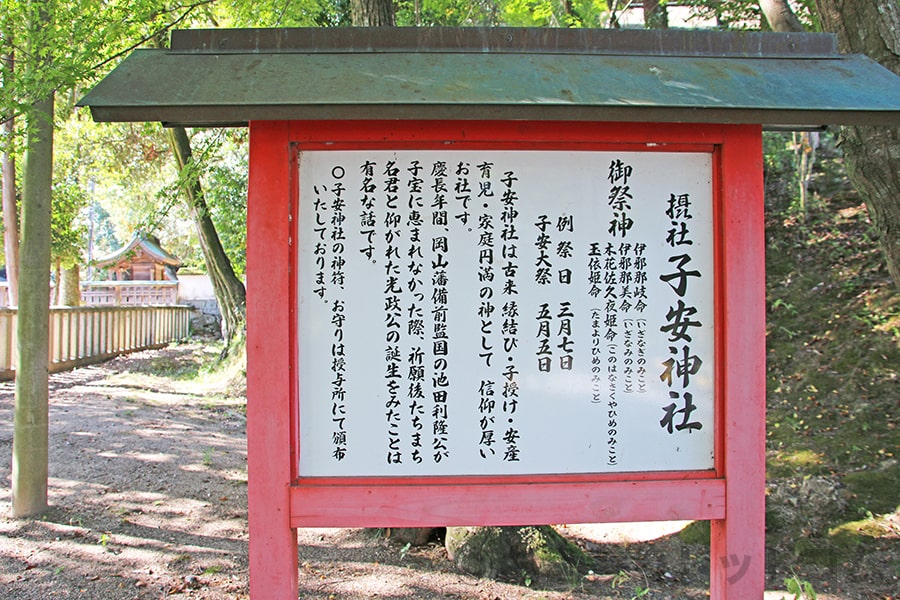 摂社 子安神社
御祭神
伊邪那岐命(いざなぎのみこと)
伊邪那美命(いざなみのみこと)
木花佐久夜姫命(このはなさくやひめのみこと)
玉依姫命(たまよりひめのみこと)
例祭日 三月七日
子安大祭 五月五日
子安神社は古来 縁結び・子授け・安産
育児・家庭円満の神として 信仰が厚い
お社です。
慶長年間、岡山藩備前監国の池田利隆公が
子宝に恵まれなかった際、祈願後たちまち
名君と仰がれた光政公の誕生をみたことは
有名な話です。
○子安神社の神符、お守りは授与所にて頒布
いたしております。